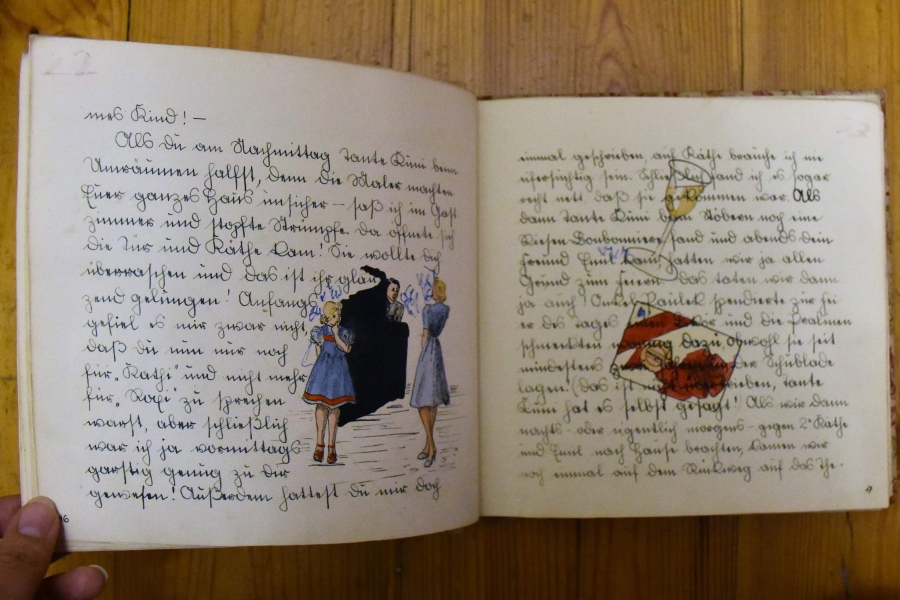 mes Kind! —
Als du am Nachmittag Tante Küni beim
Umräumen halfst, denn die Maler machten
Euer ganzes Haus unsicher — saß ich im Gast
zimmer und stopfte Strümpfe. Da öffnete sich
die Tür und Käthe kam! Sie wollte dich
überraschen und das ist ihr glän
zend gelungen! Anfangs
gefiel es mir zwar nicht,
daß du nun nur noch
für „Kathi" und nicht mehr
für „Kopi" zu sprechen
warst, aber schließlich
war ich ja vormittags
garstig genug zu dir
gewesen! Außerdem hattest du mir doch
einmal geschrieben, auf Käthe brauche ich nie
eifersüchtig sein. Schließlich fand ich es sogar
recht nett daß sie gekommen war. Als
dann Tante Küni beim Stöbern noch eine
Riesen Bonbonniere fand und abends dein
Freund Emil kam, hatten wir ja allen
Grund zum feiern das taten wir dann
ja auch! Onkel spendierte zur Fei
er des Tages einen Likör und die Pralinen
schmeckten dazu, obwohl sie seit
mindestens der Schublade
lagen! (das ist nicht übertrieben, Tante
Küni hat es selbst gesagt!) Als wir dann
nachts - oder eigentlich morgens - gegen 2h Käthe
und Emil nach Hause brachten, kamen wir
noch einmal auf dem Rückweg auf das The-